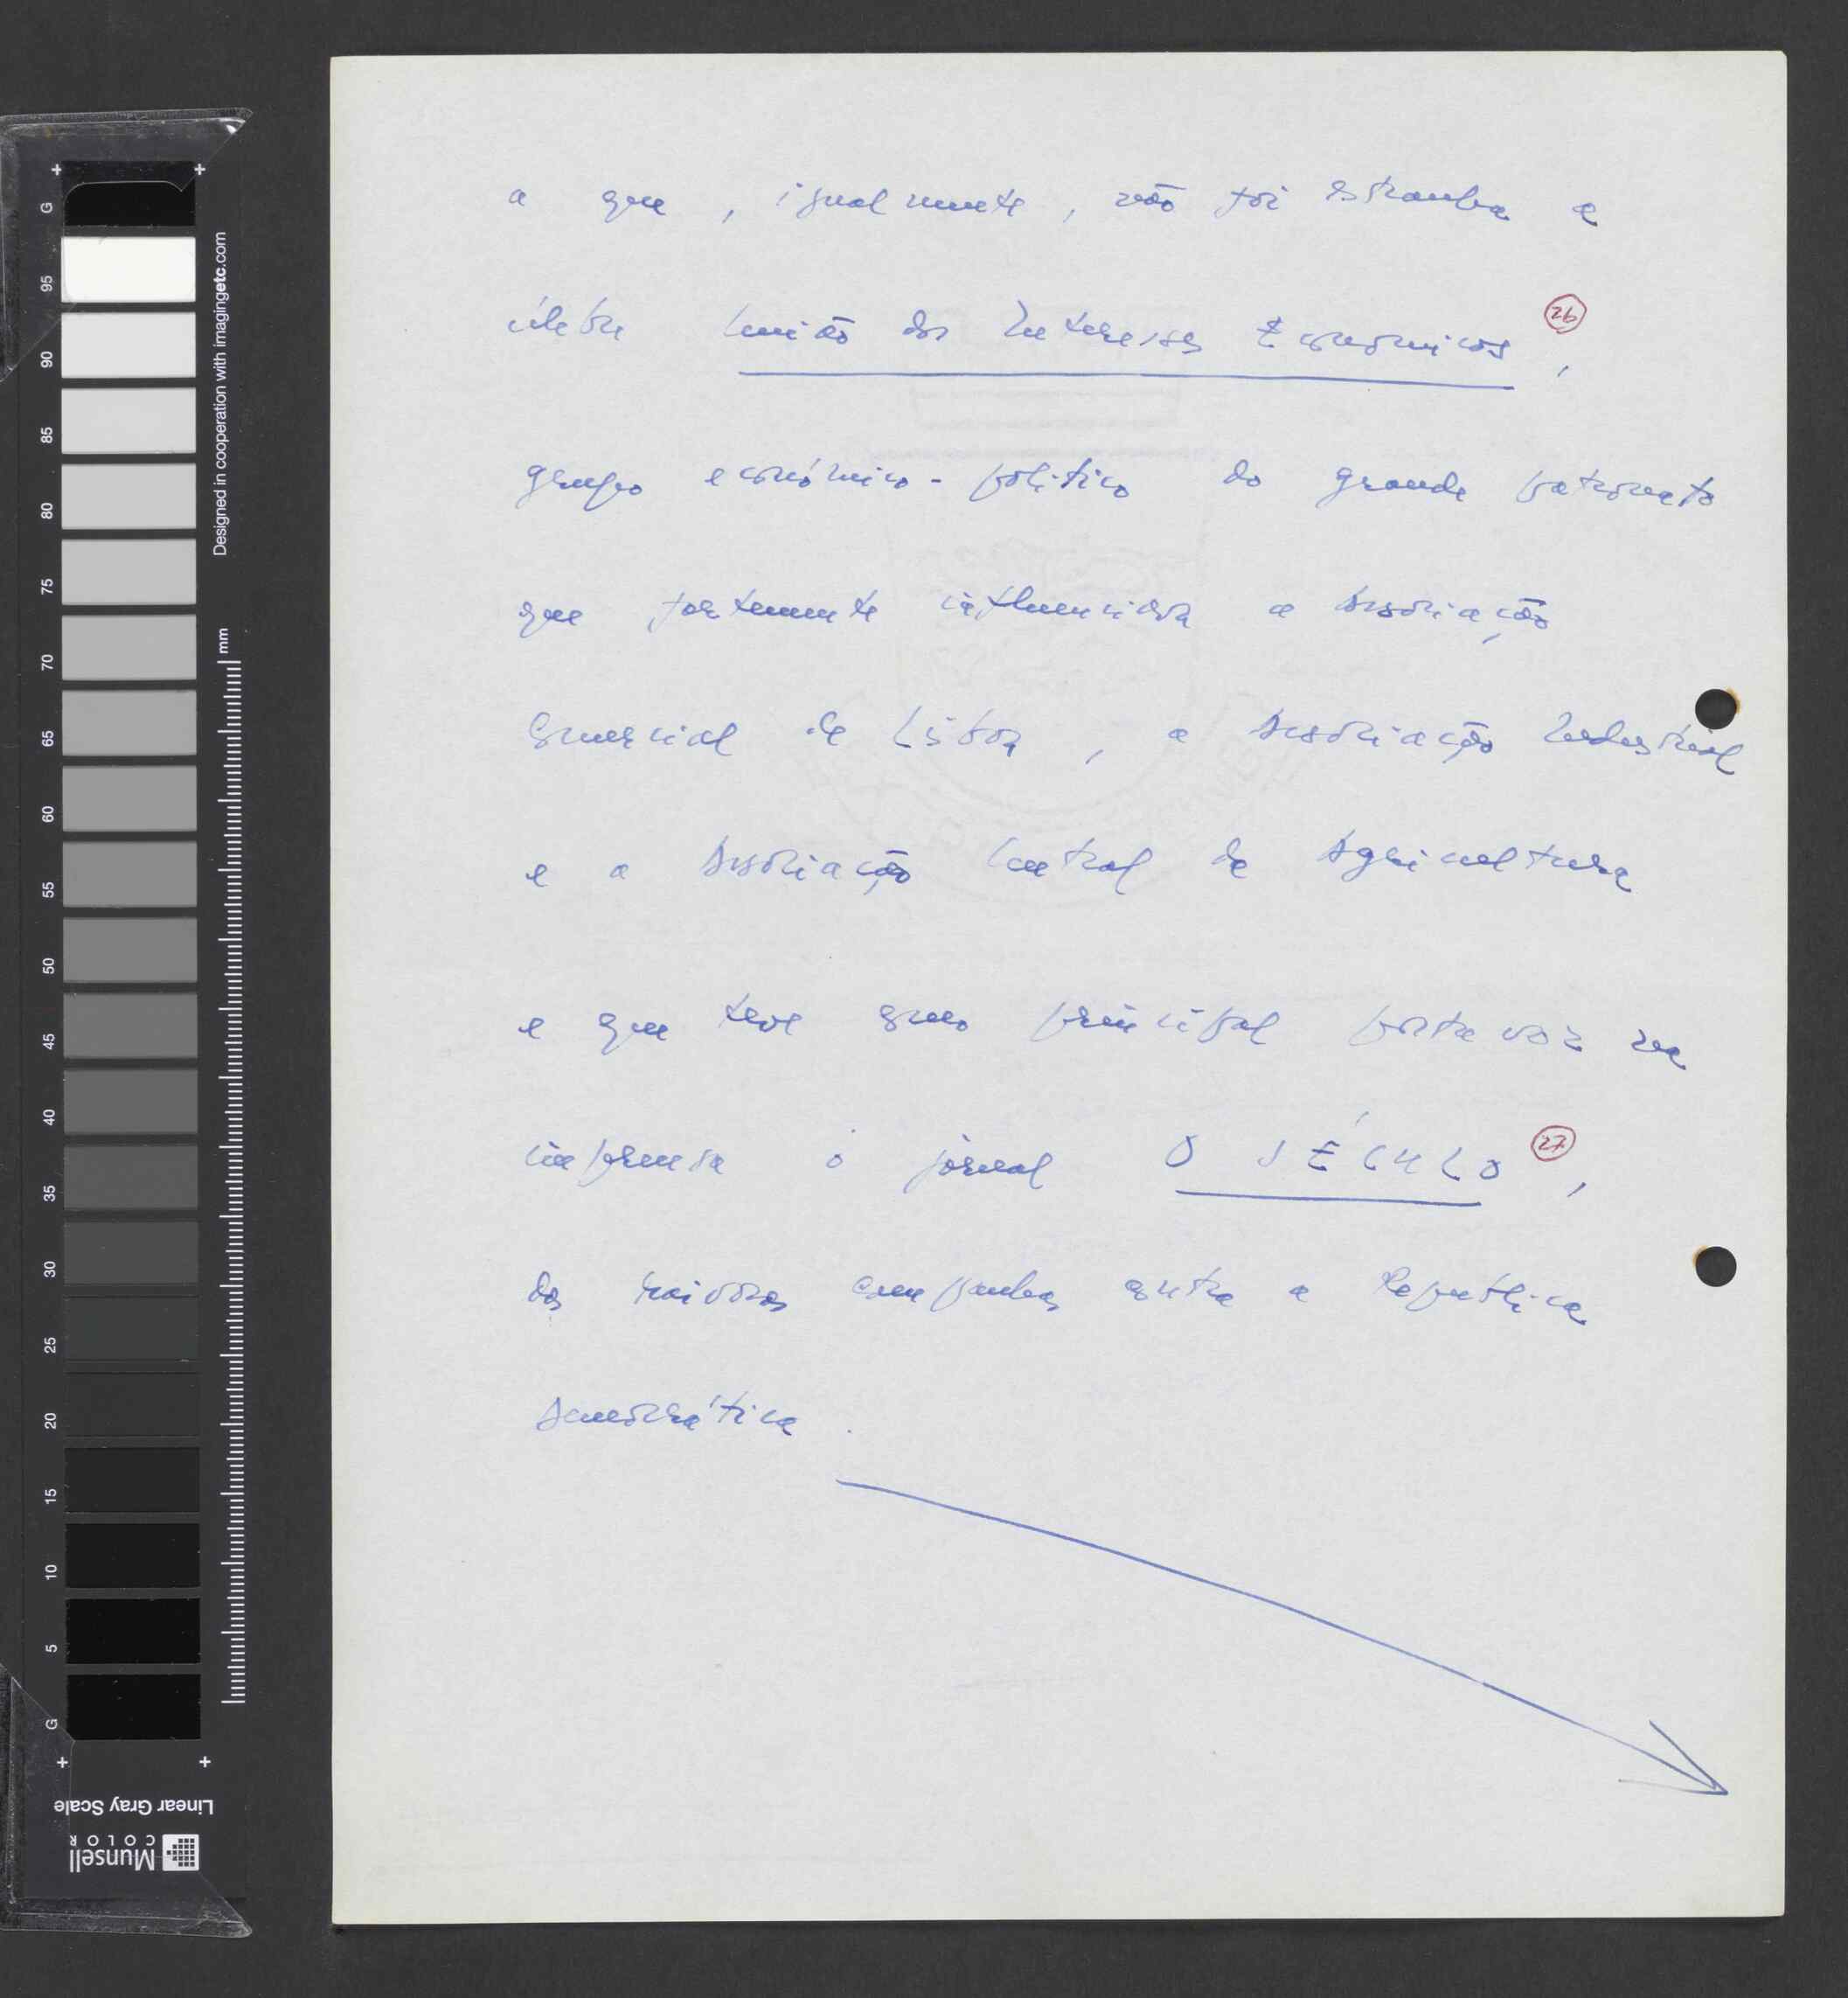 a que, igualmente, não foi estranha a
célebre União dos Interesses Económicos (26),
grupo económico-politico do grande patronato
que fortemente influenciava a Associação
Comercial de Lisboa, a Associação Industrial
e a Associação Central de Agricultura
e que teve como principal porta voz na
imprensa o jornal O SÉCULO (27),
das raivosas campanhas contra a República
Democrática.
Designed in cooperation with imagingetc.com
mm
G 95 90 85 80 75 70 65 60 55 50 45 40 35 30 25 20 15 10 5 G
Linear Gray Scale
Munsell
COLOR